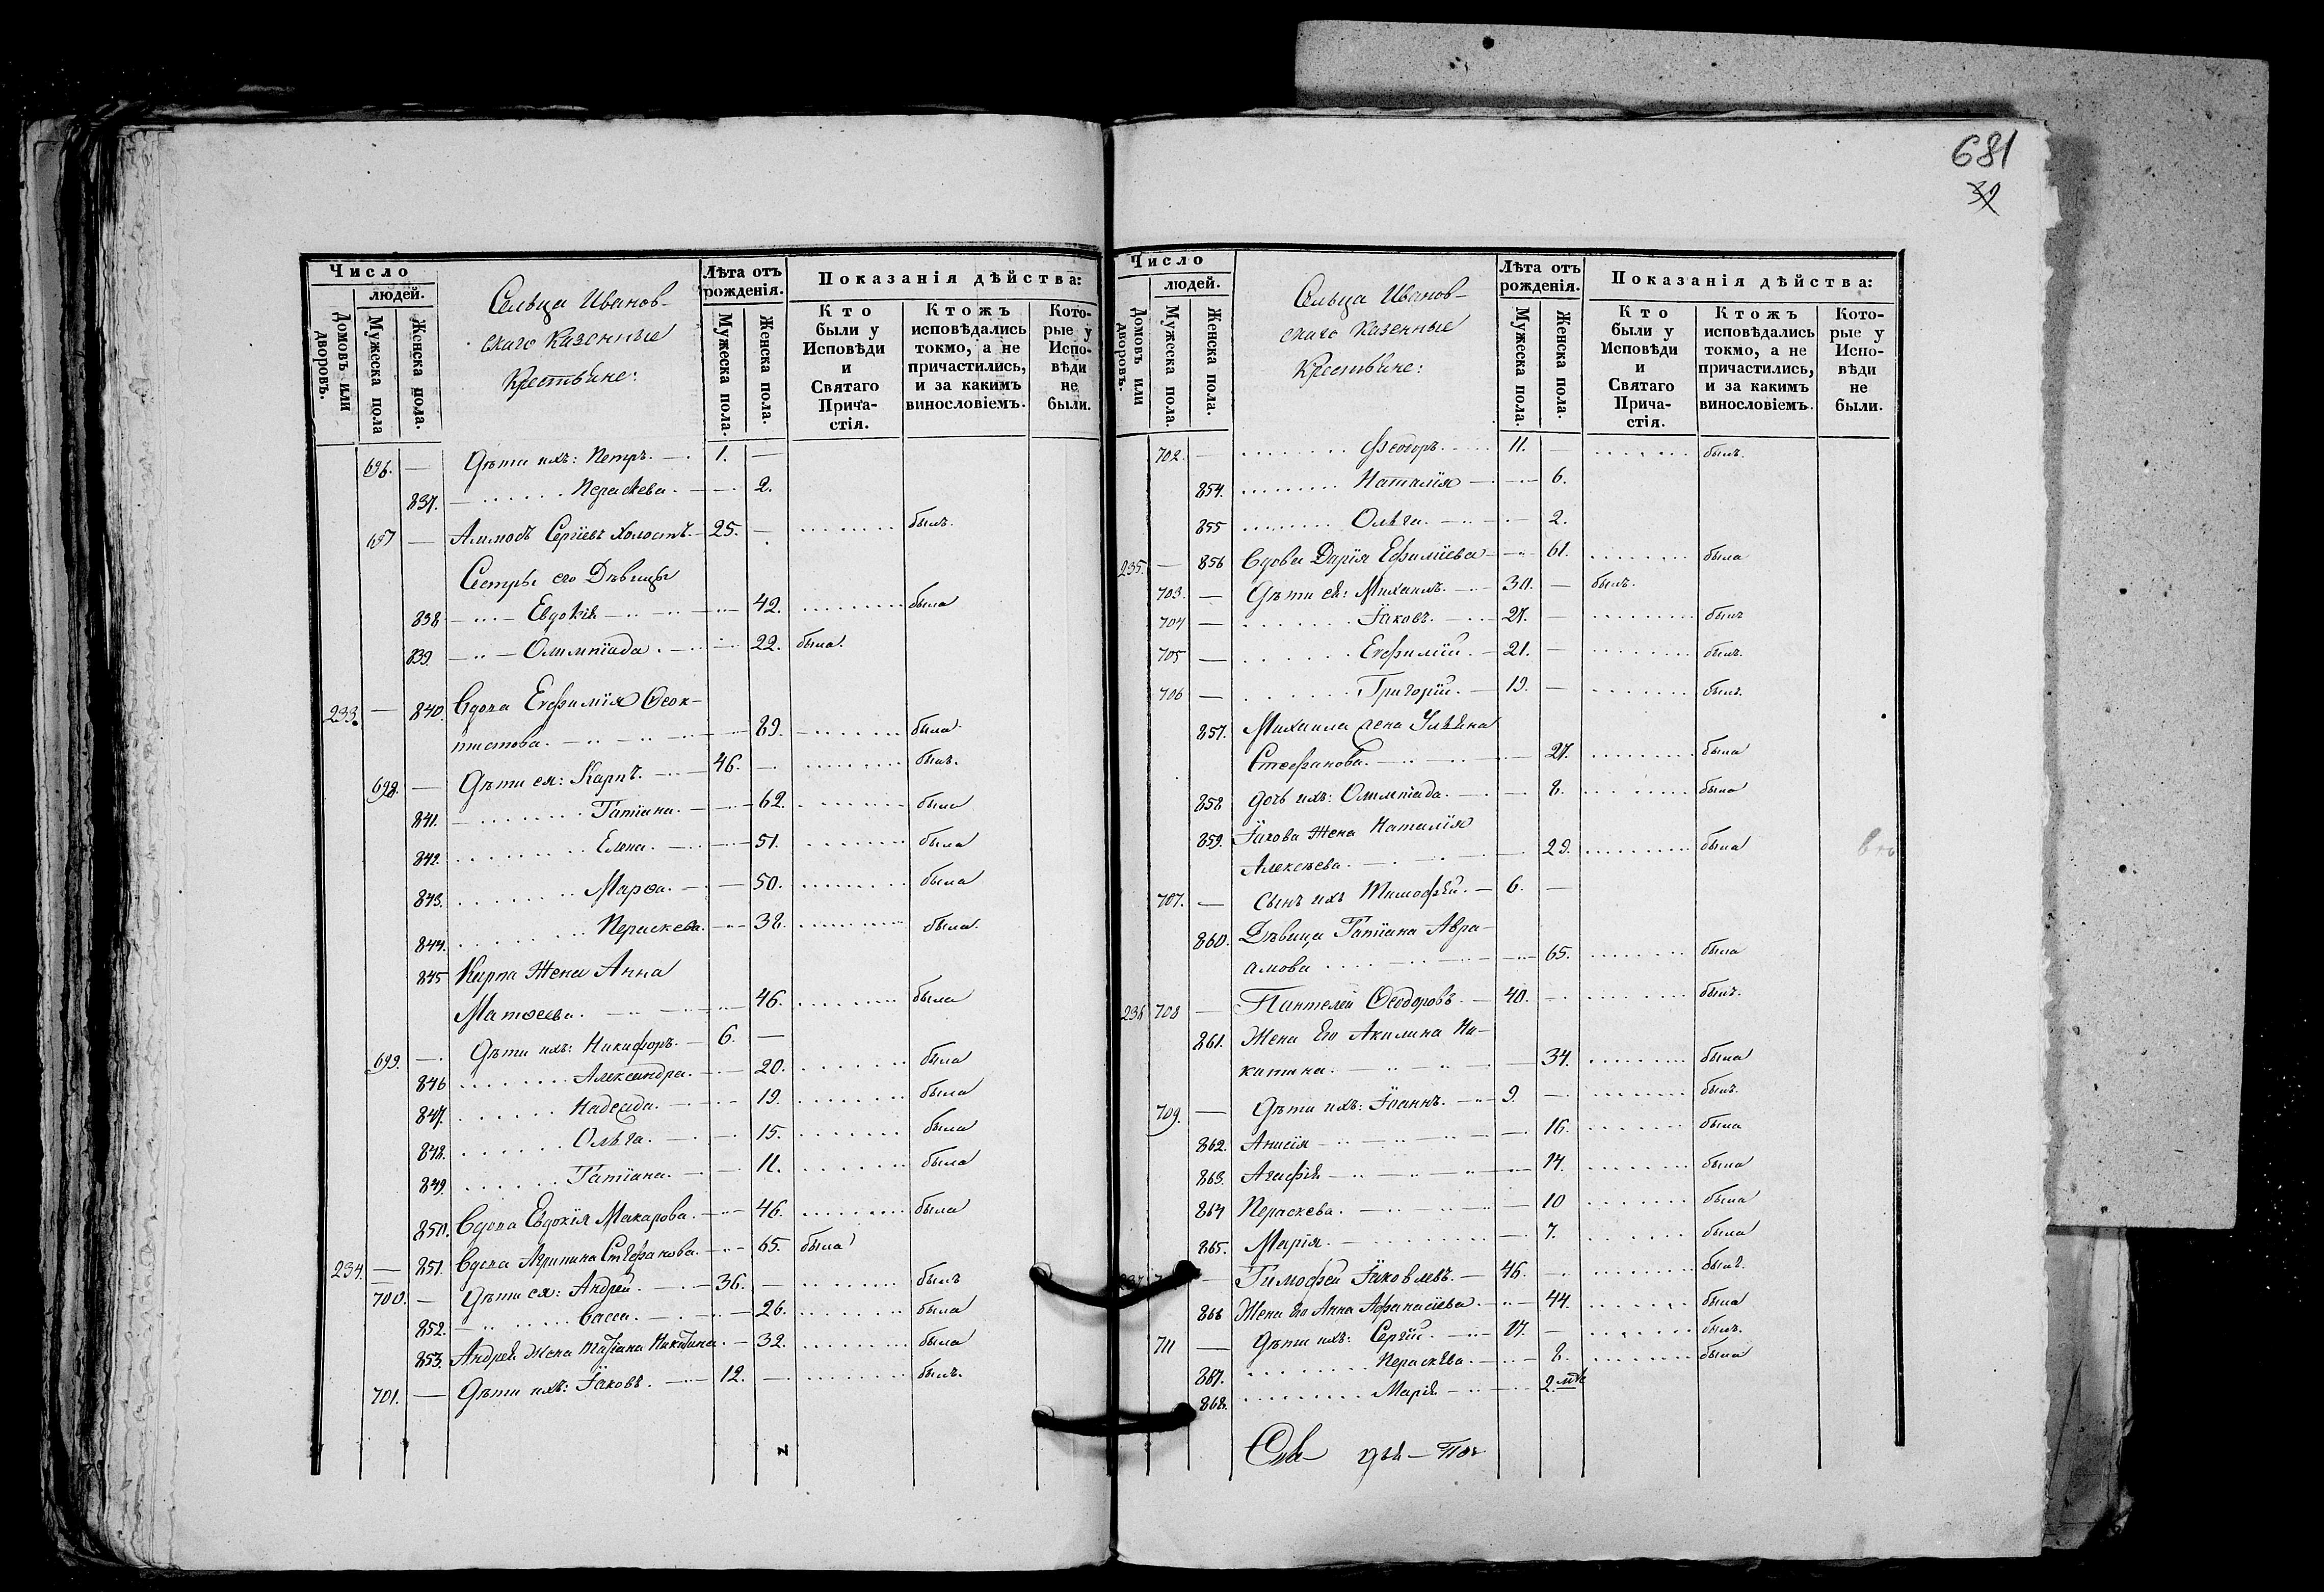 681
32
Число
людей.
Домовъ или дворовъ.
Мужеска пола
Женска пола.
Сельца Иванов-
скаго Казенные
Крестьяне:
Лѣта отъ рожденія.
Мужеска пола.
Женска пола.
Показанія дѣйства:
Кто были у Исповѣди и Святаго Прича-стія.
Ктожъ исповѣдались токмо, а не причастились, и за какимъ винословіемъ.
Кото-рые у Испо-вѣди не были.
696. — Дѣти ихъ: Петръ. 1. —
837. Параскева. 2.
697 — Сергіевъ Холостъ. 25. — былъ.
Сестры его Дѣвицы
838 Евдокія 42. была
839. Олимпіада. 22. была.
233. — 840. Вдова Евфимія Ѳеок-
тистова. 89. была.
698. — Дѣти ея: Карпъ. 46. — былъ.
841. Татіана. 62. была
842. Елена. 51. была
843. Марѳа. 50. была
844. Параскева. 38. была.
845 Карпа Жена Анна
Матѳеева. 46. была
699. — Дѣти ихъ: Никифоръ. 6. —
846 Александра. 20. была
847. Надежда. 19. была
848. Ольга. 15. была
849. Татіана. 11. была
850. Вдова Евдокія Макарова. 46. была
234. — 851. Вдова Агрипина Стефанова. 65. была
700. — Дѣти ея: Андрей. 36. — былъ
852. Васса. 26. была
853. Андрея Жена Татіана Никитина. 32. была
701. — Дѣти ихъ: Іаковъ. 12. — былъ.
Число
людей.
Домовъ или дворовъ.
Мужеска пола.
Женска пола.
Сельца Иванов-
скаго Казенные
Крестьяне:
Лѣта отъ рожденія.
Мужеска пола.
Женска пола.
Показанія дѣйства:
Кто были у Исповѣди и Святаго Прича-стія.
Ктожъ исповѣдались токмо, а не причастились, и за какимъ винословіемъ.
Кото-рые у Испо-вѣди не были.
702. — Ѳеодоръ. 11. — былъ.
854. Наталія 6.
855 Ольга. 2.
235. — 856 Вдова Дарія Ефиміева 61. была
703. — Дѣти ея: Михаилъ. 30. — былъ.
704 — Іаковъ. 27. — былъ
705 — Евфимій. 21. — былъ.
706 — Григорій. 19. — былъ.
857. Михаила жена Ульяна
Стефанова. 27. была
858 дочь ихъ: Олимпіада. 8. была
859. Іакова Жена Наталія
Алексѣева. 29. была
707. — Сынъ ихъ Тимофей. 6. —
860. Дѣвица Татіана Авра-
амова 65. была
236 708 — Пантелей Ѳеодоровъ. 40. — былъ.
861. Жена Его Акилина Ни-
китина. 34. была
709. — Дѣти ихъ: Іоаннъ. 9. — былъ.
862. Анисія 16. была
863. Агафія 14. была
864 Параскева. 10 была
865. Марія. 7. была
— Тимофей Іаковлевъ. 46. — былъ.
866 Жена Его Анна Афанасіева. 44. была
711 — Дѣти ихъ: Сергій. 17. — былъ.
867. Параскева. 8. была
868. Марія 2. мѣс